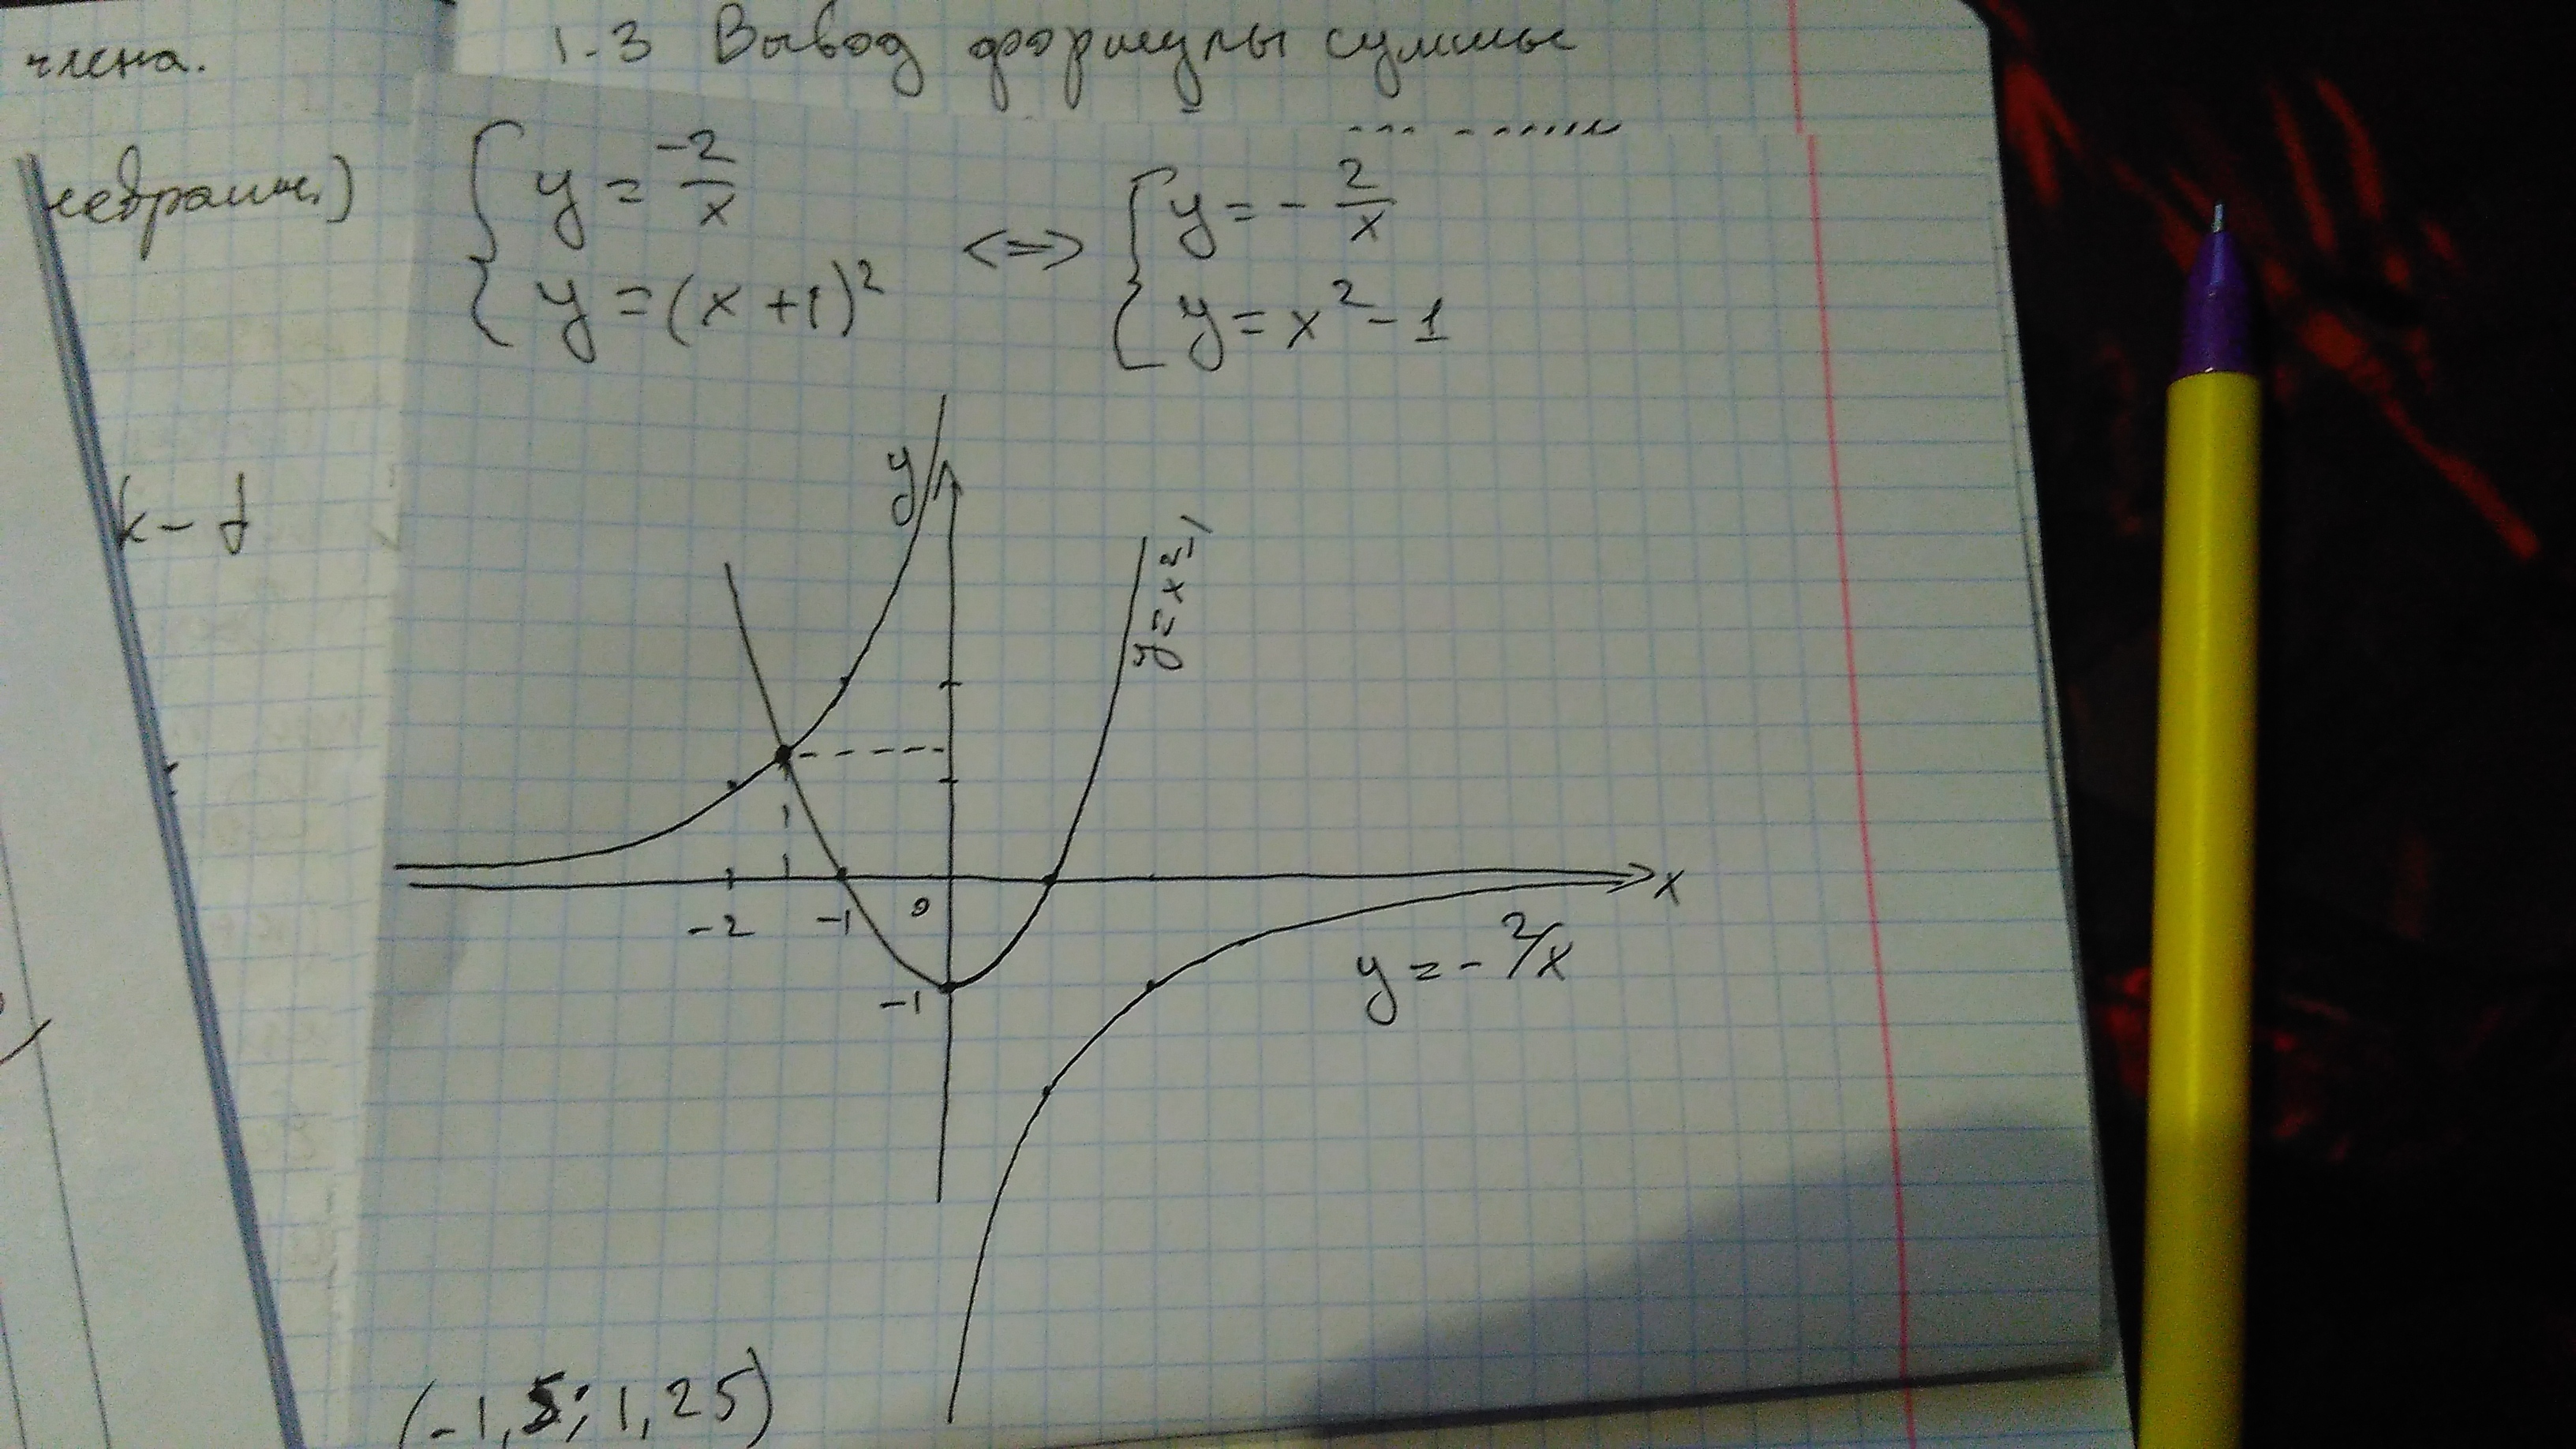 члена.
1-3 Вывод формулы суммы
y = -2/x
y = (x + 1)²
<=>
y = - 2/x
y = x² - 1
y
y = x² - 1
-2
-1
0
x
-1
y = - 2/x
(-1,5; 1,25)